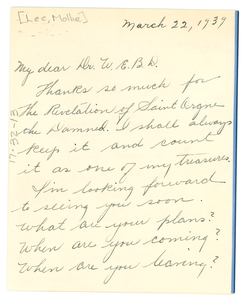 [Lee, Mollie]
March 22, 1939
My dear Dr. W.E.B.D.
Thanks so much for
the Revelation of Saint Orgne
the Damned. I shall always
keep it and count
it as one of my treasures.
I'm looking forward
to seeing you soon.
What are your plans?
When are you coming?
When are you leaving?